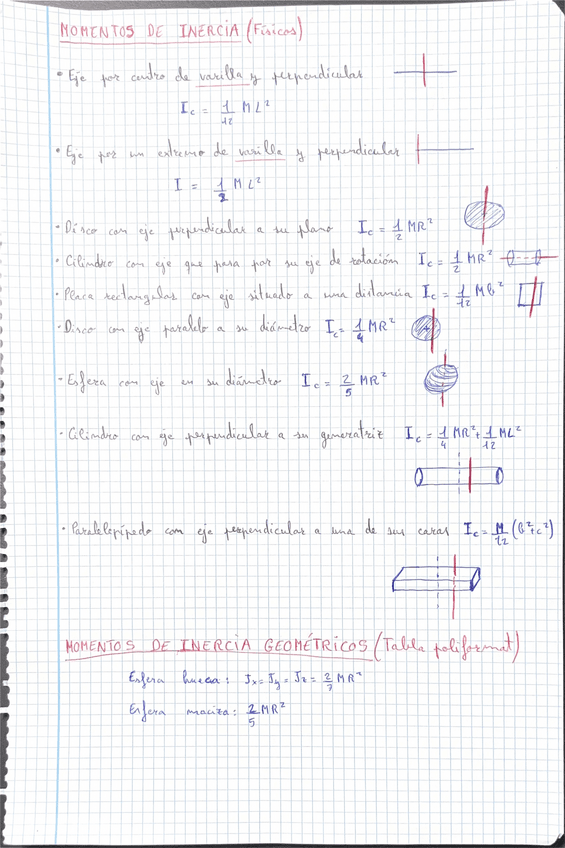 MOMENTOS DE INERCIA (Físicos)
• Eje por centro de varilla y perpendicular
I_c = 1/12 ML²
• Eje por un extremo de varilla y perpendicular
I = 1/2 ML²
• Disco con eje perpendicular a su plano I_c = 1/2 MR²
• Cilindro con eje que pasa por su eje de rotación I_c = 1/2 MR²
• Placa rectangular con eje situado a una distancia I_c = 1/12 Mb²
• Disco con eje paralelo a su diámetro I_c = 1/4 MR²
• Esfera con eje en su diámetro I_c = 2/5 MR²
• Cilindro con eje perpendicular a su generatriz I_c = 1/4 MR² + 1/12 ML²
• Paralelepípedo con eje perpendicular a una de sus caras I_c = M/12 (b²+c²)
MOMENTOS DE INERCIA GEOMÉTRICOS (Tabla poliformat)
Esfera hueca: J_x = J_y = J_z = 2/7 MR²
Esfera maciza: 2/5 MR²